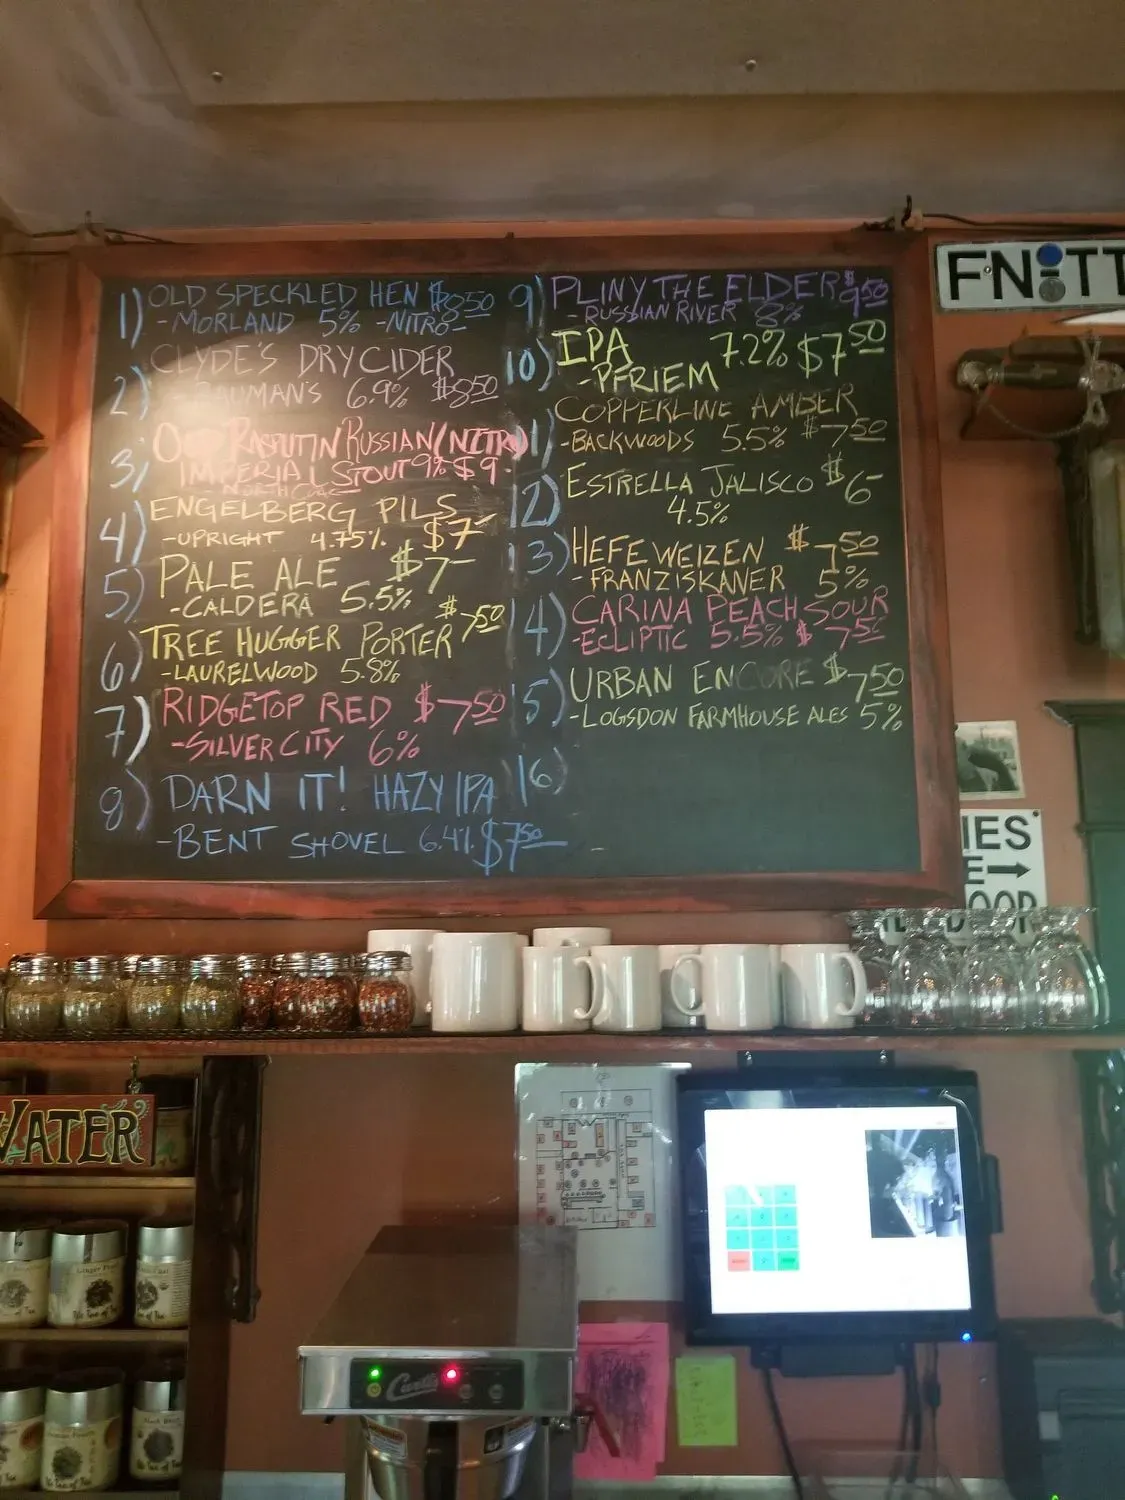 1) OLD SPECKLED HEN $8.50
-MORLAND 5% -NITRO-
2) CLYDE'S DRY CIDER
6.9% $8.50
3) OLD RASPUTIN RUSSIAN (NITRO)
IMPERIAL STOUT 9% $9-
4) ENGELBERG PILS
-UPRIGHT 4.75% $7-
5) PALE ALE $7-
-CALDERA 5.5%
6) TREE HUGGER PORTER $7.50
-LAURELWOOD 5.8%
7) RIDGETOP RED $7.50
-SILVER CITY 6%
8) DARN IT! HAZY IPA
-BENT SHOVEL 6.4% $7.50
9) PLINY THE ELDER $9.50
-RUSSIAN RIVER 8%
10) IPA 7.2% $7.50
-PFRIEM
11) COPPERLINE AMBER
-BACKWOODS 5.5% $7.50
12) ESTRELLA JALISCO $6-
4.5%
13) HEFEWEIZEN $7.50
-FRANZISKANER 5%
14) CARINA PEACH SOUR
-ECLIPTIC 5.5% $7.50
15) URBAN ENCORE $7.50
-LOGSDON FARMHOUSE ALES 5%
16)
FNiTT
IES
E→
OOR
WATER
Curtis